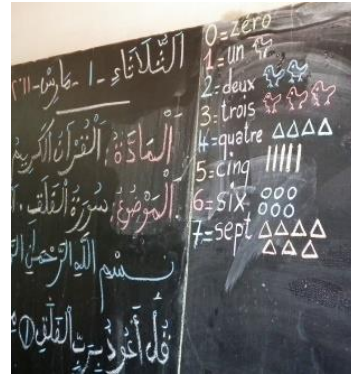 الثُّلَاثَاءِ - 1 - مَارِسْ - ٢٠١١
الْمَادَّةُ: الْقُرْآنُ الْكَرِيمُ
الْمَوْضُوعُ: سُورَةُ الْفَلَقِ.
بِسْمِ اللَّهِ الرَّحْمَٰنِ
قُلْ أَعُوذُ بِرَبِّ الْفَلَقِ ①
0=zéro
1=un
2=deux
3=trois
4=quatre
5=cinq
6=six
7=sept